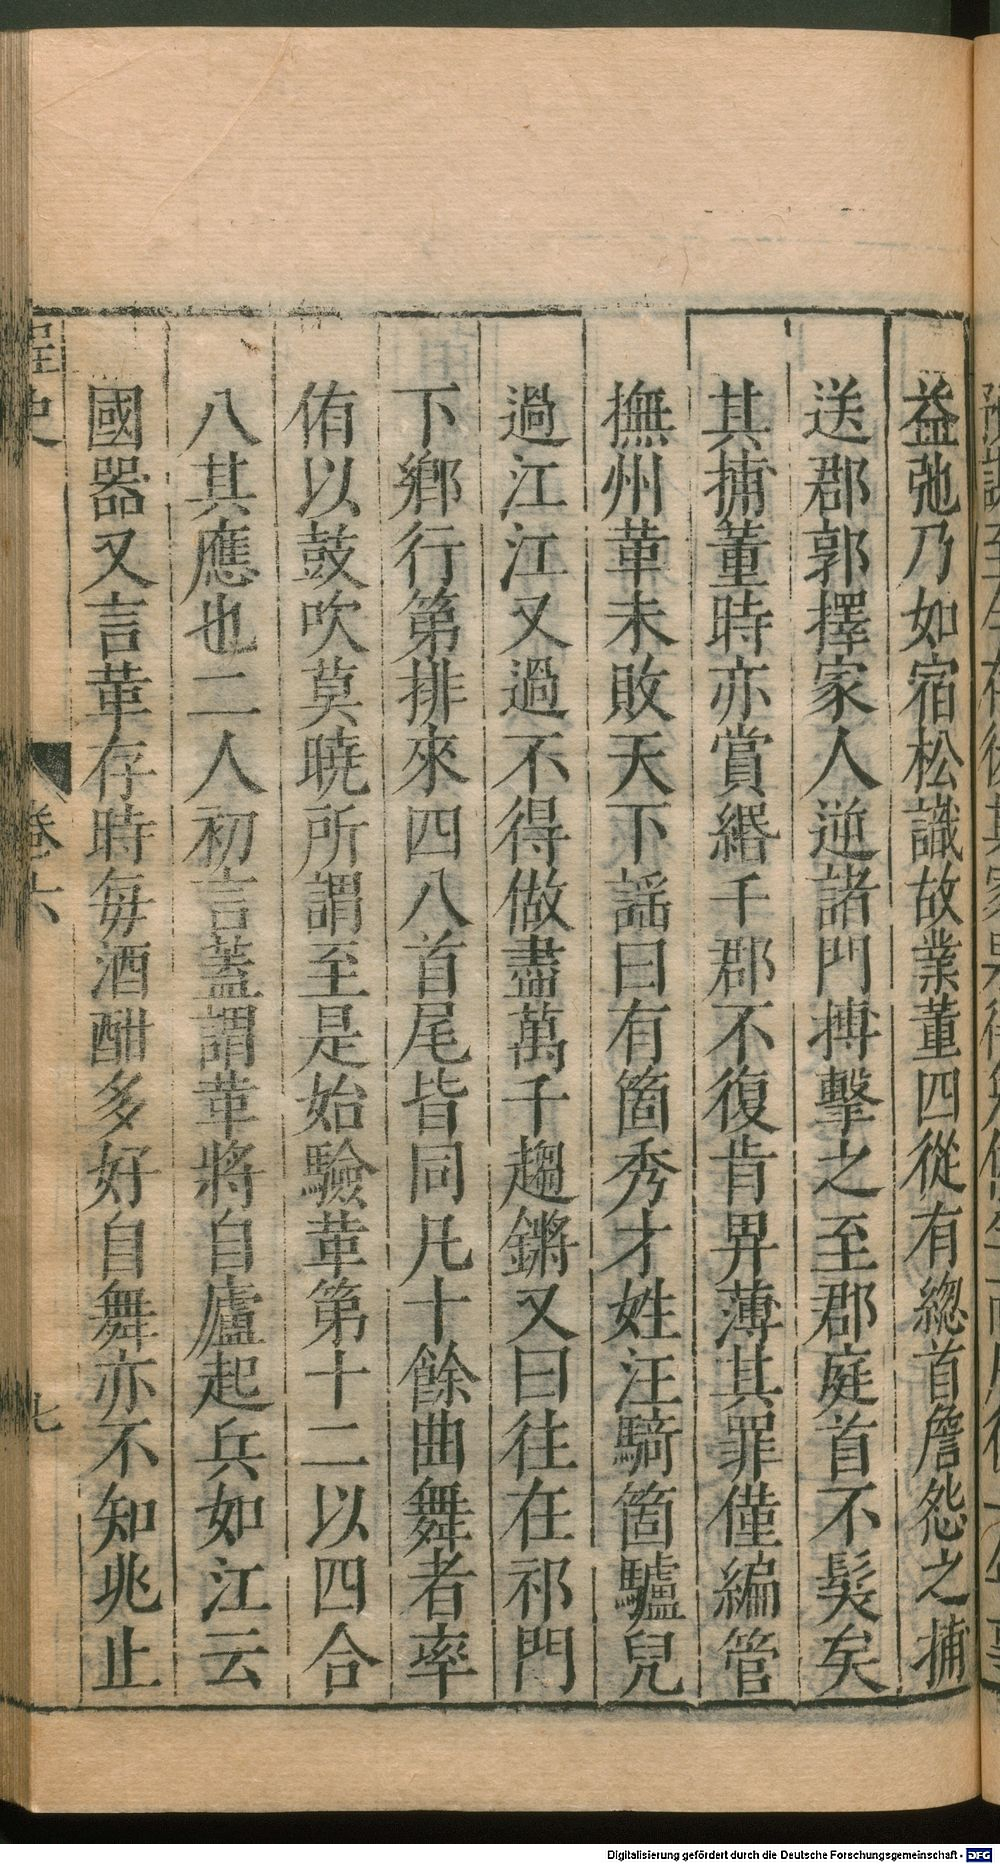 益弛乃如宿松識故業董四從有總首詹怨之捕
送郡郭擇家人逆諸門搏擊之至郡庭首不髮矣
其捕董時亦賞緡千郡不復肯畀薄其罪僅編管
撫州革未敗天下謡曰有箇秀才姓汪騎箇驢兒
過江江又過不得做盡萬千趨鏘又曰往在祁門
下鄉行第排來四八首尾皆同凡十餘曲舞者率
侑以鼓吹莫曉所謂至是始驗革第十二以四合
八其應也二人初言蓋謂革將自廬起兵如江云
國器又言革存時每酒酣多好自舞亦不知兆止
桯史
卷六
七
Digitalisierung gefördert durch die Deutsche Forschungsgemeinschaft - DFG